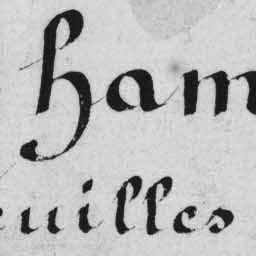 ham
euilles